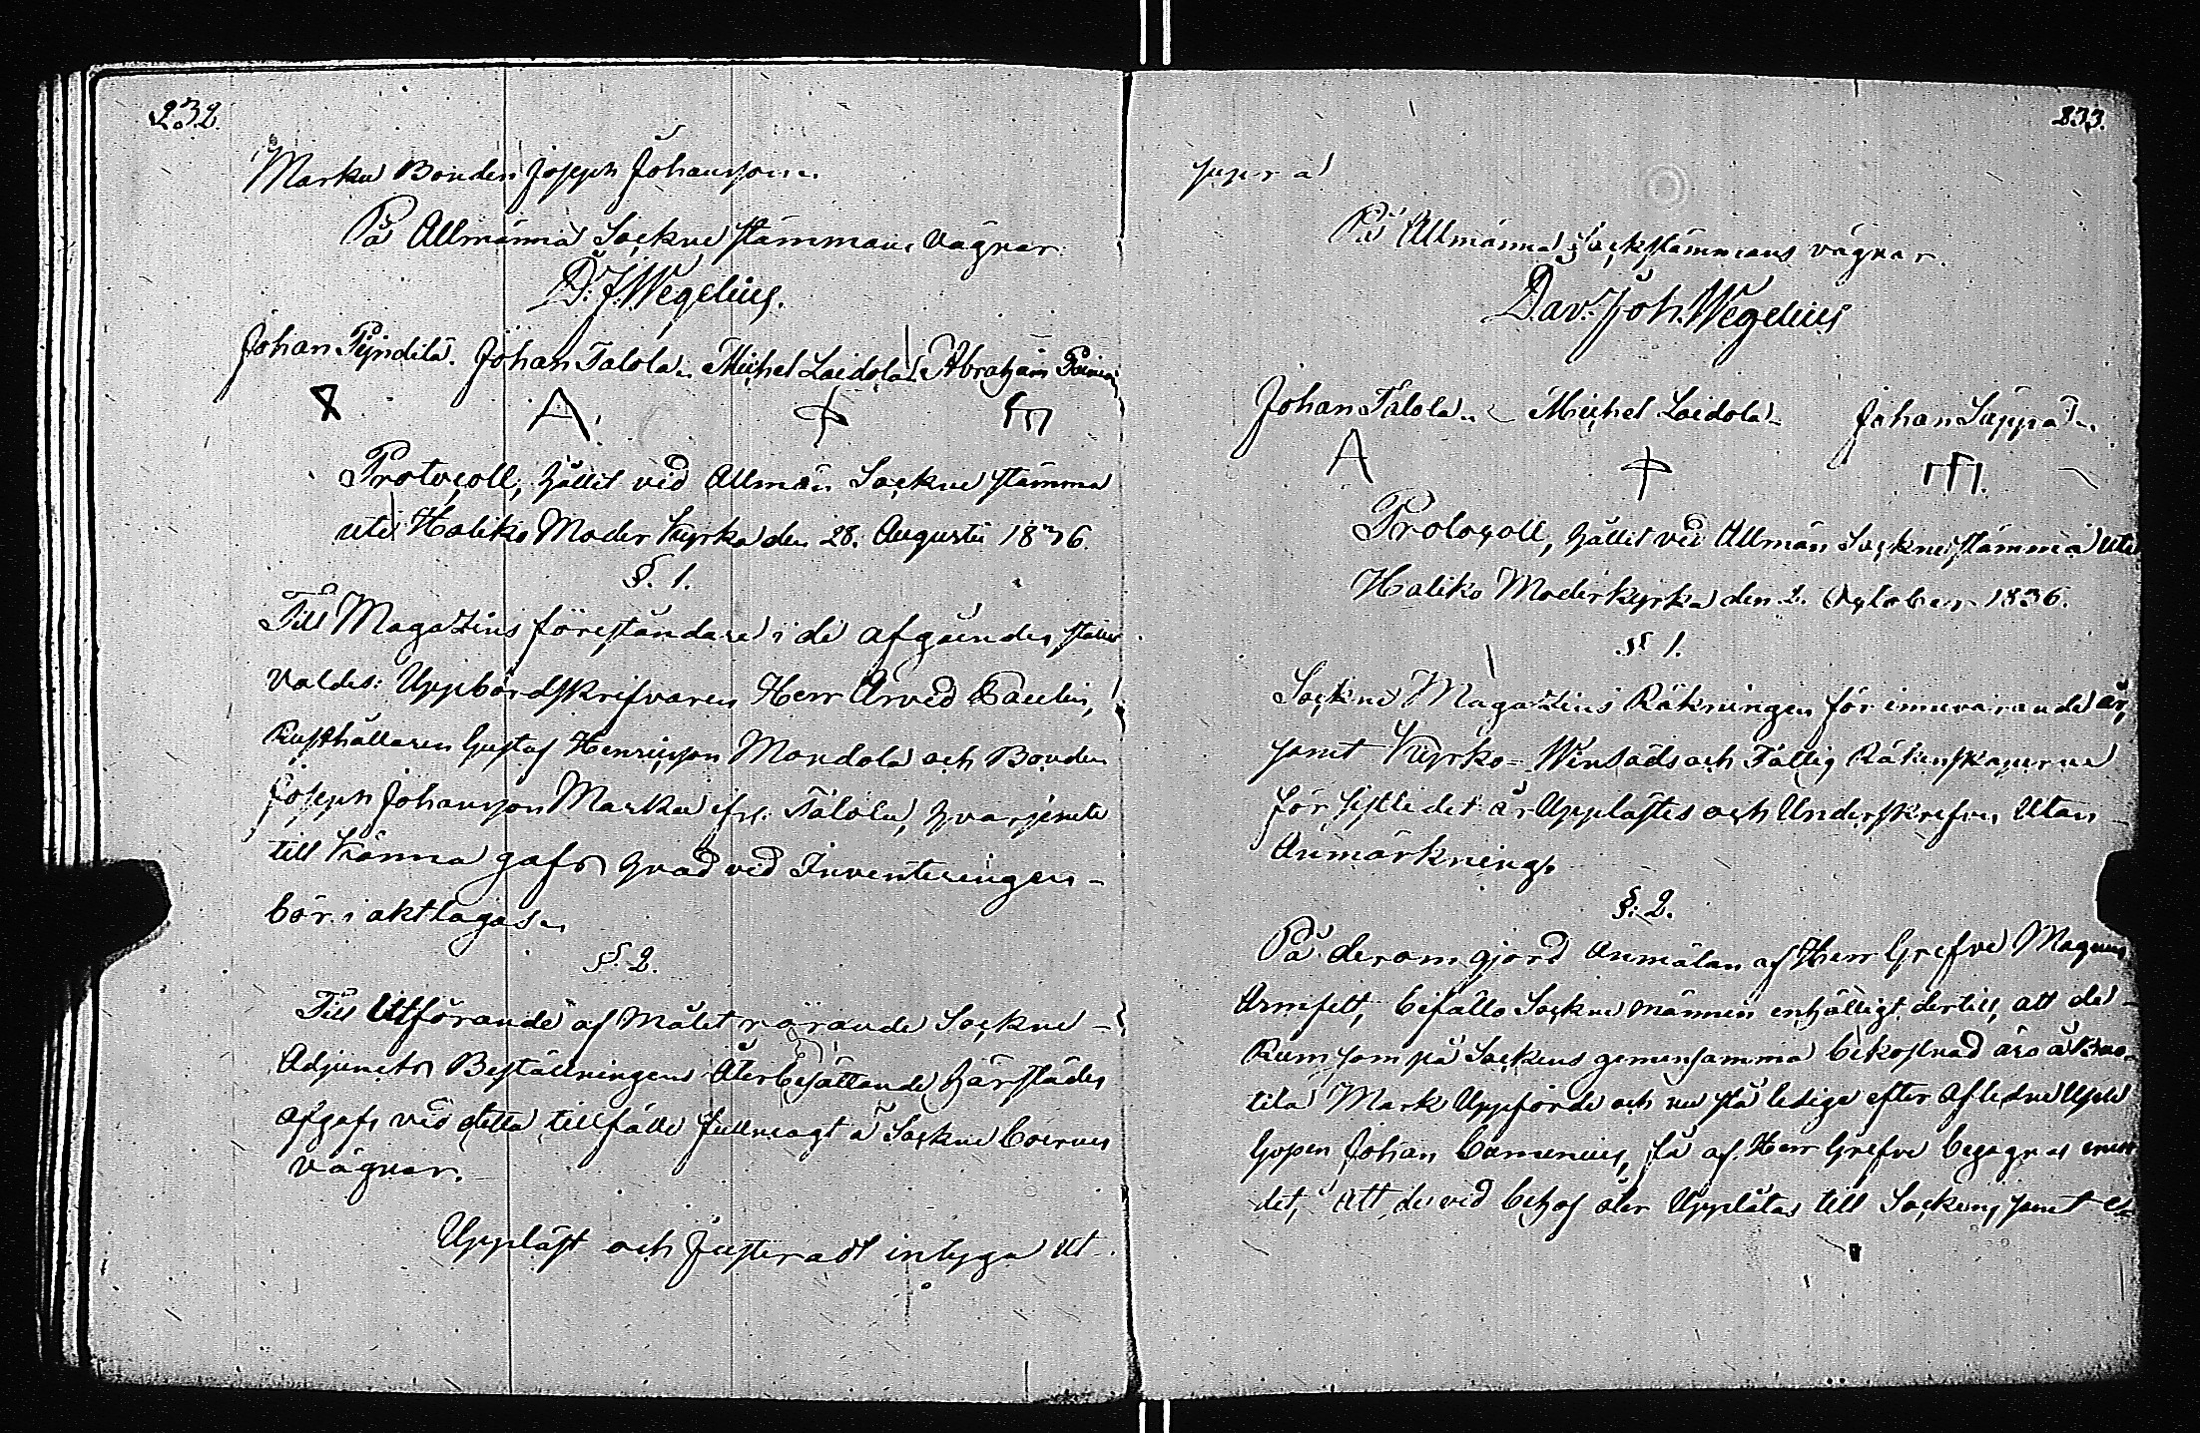 232.
Marku Bonden Joseph Johansson.
På Allmänna Sockne stämmans Vägnar.
D. J. Wegelius.
Johan Pyndilä. Johan Talola. Michel Laidola. Abraham
Protocoll, hållit vid Allmän Sockne stämma
uti Haliko Moder Kyrka den 28. Augustii 1836.
§. 1.
Till Magazins föreståndare i de afgåendes ställe
valdes: Uppbördsskrifvaren Herr Arvid Paulin,
Rusthållaren Gustaf Henricsson Mondola och Bonden
Joseph Johansson Marku ifr. Talola, hvarjemte
till känna gafs hvad vid Inventeringen
bör i akttagas.
§. 2.
Till Utförande af målet rörande Sockne-
Adjuncts Beställningens Återbesättande härstädes
afgafs vid detta tillfälle fullmagt å Sockne boernes
vägnar.
Uppläst och Justeradt intyga Ut
233.
supra
På Allmänna Sockstämmans vägnar.
Dav. Joh. Wegelius
Johan Talola. Michel Laidola. Johan Sappa.
Protocoll, hållit vid Allmän Sockne stämma uti
Haliko Moderkyrka den 2. October 1836.
§ 1.
Sockne Magazins Räkningen för innevarande år,
samt Kyrko- Winsäds och Fattig Räkenskaperne
för sistledet år Upplästes och Underskrefvos Utan
Anmärkning.
§. 2.
På derom gjord Anmälan af Herr Grefve Magnus
Armfelt, biföllo Sockne männen enhälligt dertill, att de
Rum som på Sockens gemensamma bekostnad äro å
tila Mark Uppförde och nu stå ledige efter Aflidne
Johan Camenius, få af Herr Grefve begagnas
det, att de vid behof åter Upplåtas till Socken, samt